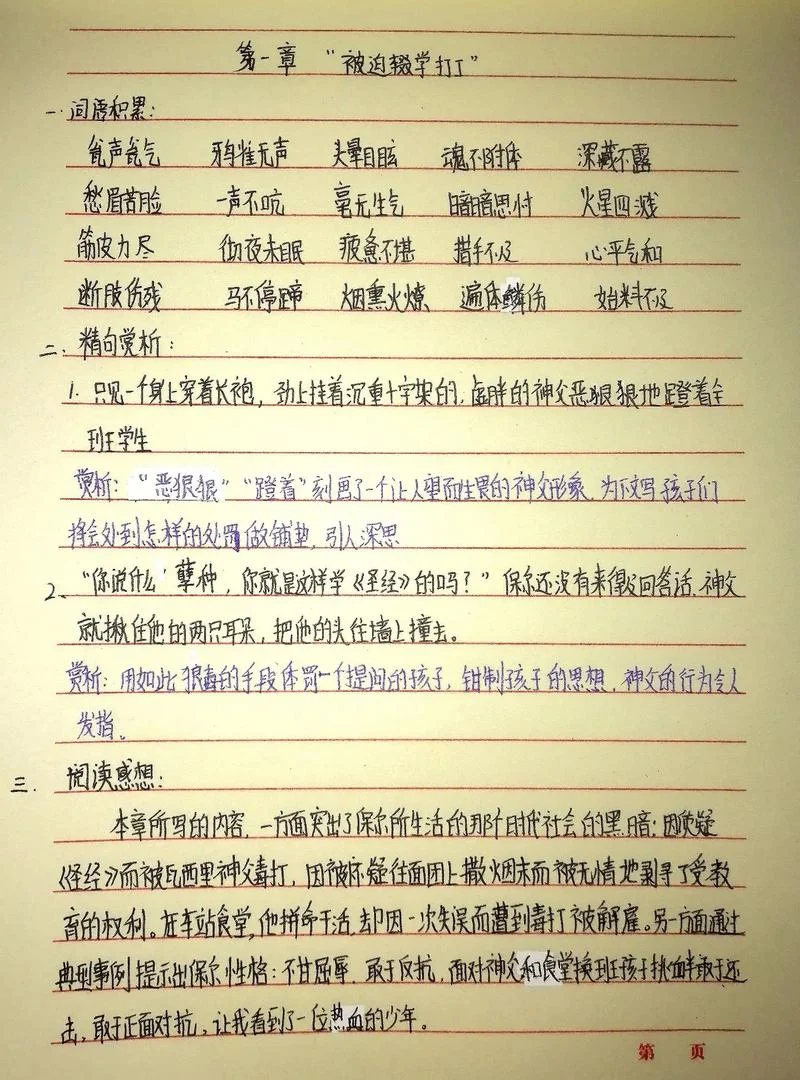 第一章 “被迫辍学打工”
一.词语积累:
瓮声瓮气 鸦雀无声 头晕目眩 魂不附体 深藏不露
愁眉苦脸 一声不吭 毫无生气 暗暗思忖 火星四溅
筋皮力尽 彻夜未眠 疲惫不堪 措手不及 心平气和
断肢伤残 马不停蹄 烟熏火燎 遍体鳞伤 始料不及
二、精句赏析:
1. 只见一个身上穿着长袍,劲上挂着沉重十字架的,虚胖的神父恶狠狠地蹬着全
班学生
赏析:“恶狠狠”“蹬着”刻画了一个让人望而生畏的神父形象,为下文写孩子们
将会处到怎样的处罚做铺垫,引人深思
2、“你说什么 孽种,你就是这样学《圣经》的吗?”保尔还没有来得及回答话,神父
就揪住他的两只耳朵,把他的头往墙上撞去。
赏析:用如此狠毒的手段体罚一个提问的孩子,钳制孩子的思想,神父的行为令人
发指。
三.阅读感想:
本章所写的内容,一方面突出了保尔所生活的那个时代社会的黑暗:因质疑
《圣经》而被瓦西里神父毒打,因被怀疑往面团上撒烟末而被无情地剥寻了受教
育的权利。在车站食堂,他拼命干活,却因一次失误而遭到毒打被解雇。另一方面通过
典型事例提示出保尔性格:不甘屈辱,敢于反抗,面对神父和食堂换班孩子挑衅敢于还
击,敢于正面对抗,让我看到了一位热血的少年。
第 页